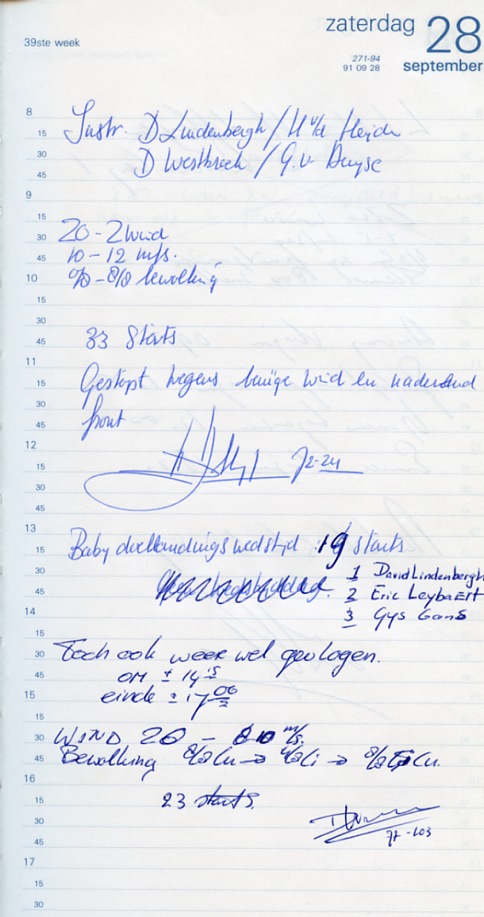 39ste week
zaterdag 28
271-94
91 09 28
september
8
15 Instr. D Lindenbergh / H v/d Heijde
30 D Westbroek / G. v. Duyse
45
9
15
30 20 - 2 wind
45 10 - 12 m/s.
10 0/8 - 8/8 bewolking
15
30
45 33 Starts
11
15 Gestopt wegens buiige wind en naderend
30
45 front
12
15 72-24
30
45
13
15 Baby doellandingswedstijd 19 starts
30 1 David Lindenbergh
45 2 Eric Leybaert
14 3 Gys Gans
15
30 Toch ook weer wel gevlogen.
45 om ± 14 15
15 einde ± 17 00
15
30 WIND 20 - m/s.
45 Bewolking Cu → Ci → Cu.
16
15 23 starts.
30
45 77-103
17
15
30